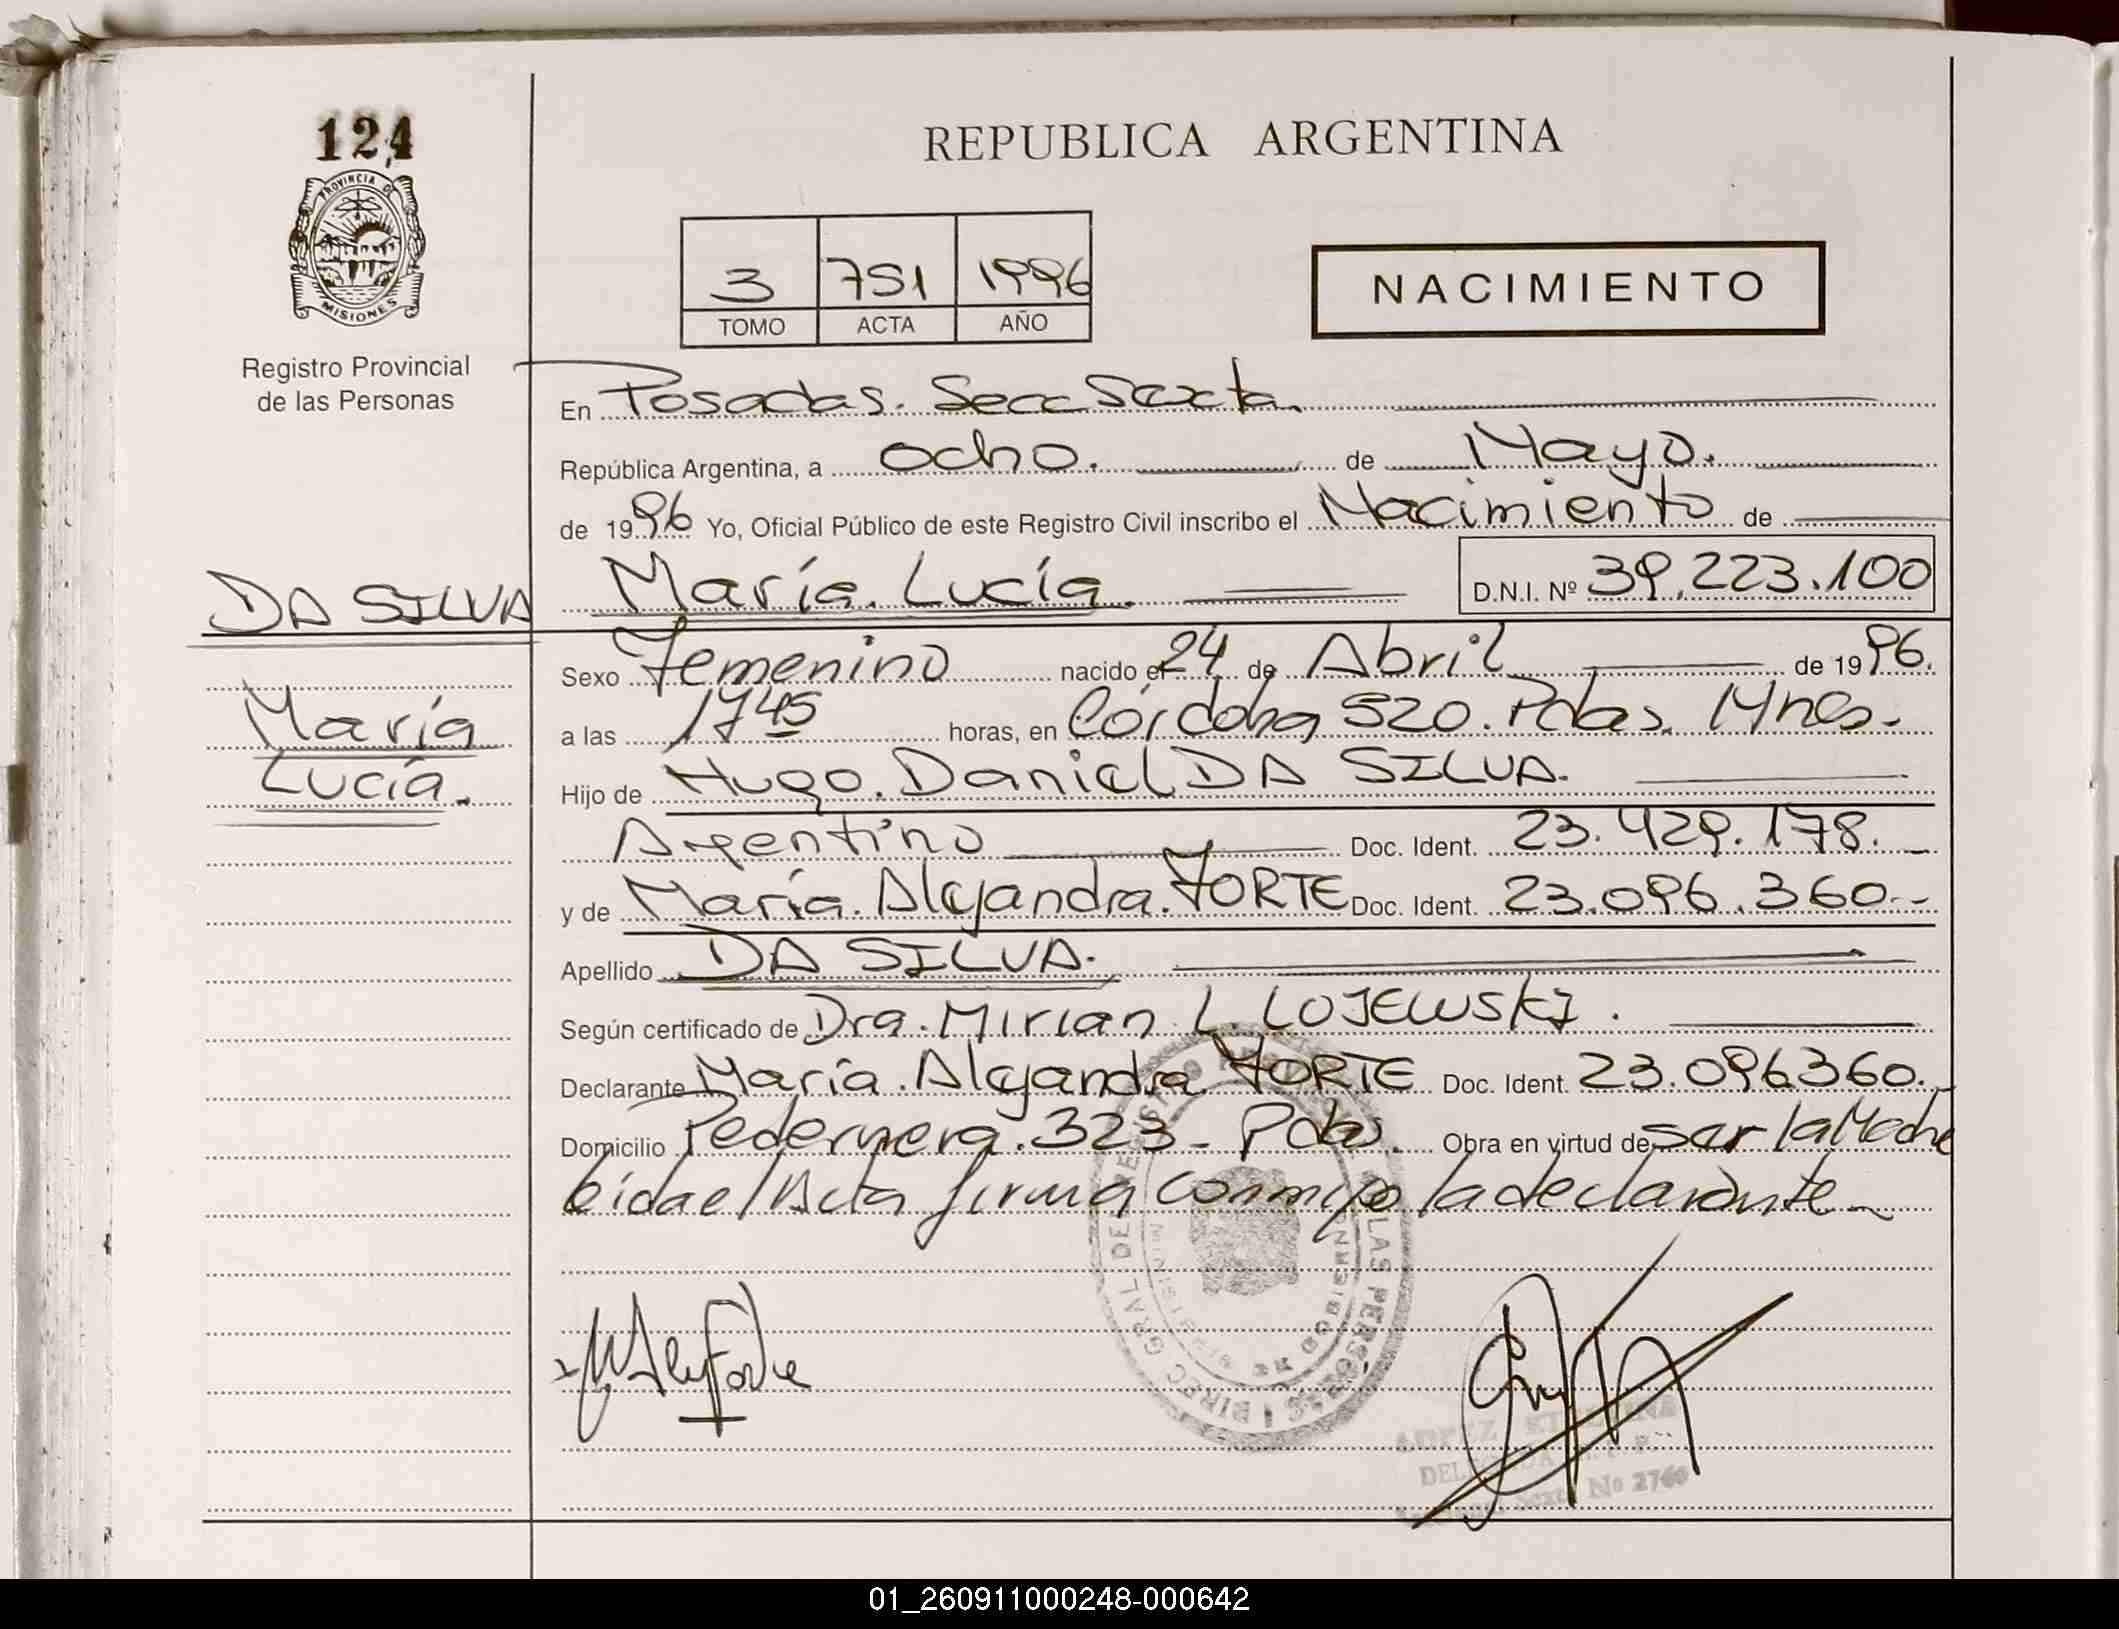 124
PROVINCIA DE
MISIONES
Registro Provincial
de las Personas
REPUBLICA ARGENTINA
3 751 1996
TOMO ACTA AÑO
NACIMIENTO
En Posadas. Secc Sexta.
República Argentina, a ocho. de Mayo.
de 1996 Yo, Oficial Público de este Registro Civil inscribo el Nacimiento de
DA SILVA
María
Lucía.
María Lucía. D.N.I. Nº 39.223.100
Sexo Femenino nacido el 24 de Abril de 1996.
a las 1745 horas, en Córdoba 520. Pdas. Mnes.
Hijo de Hugo Daniel DA SILVA.
Argentino Doc. Ident. 23.429.178.
y de María Alejandra FORTE Doc. Ident. 23.096.360.-
Apellido DA SILVA.
Según certificado de Dra. Mirian L. LOJEWSKI.
Declarante María Alejandra FORTE Doc. Ident. 23.096360.-
Domicilio Pedernera. 323- Pdas. Obra en virtud de ser la Madre
leida el Acta firma conmigo la declarante-
LAS PERSONAS
DIREC GRAL DE
No 2760
01_260911000248-000642